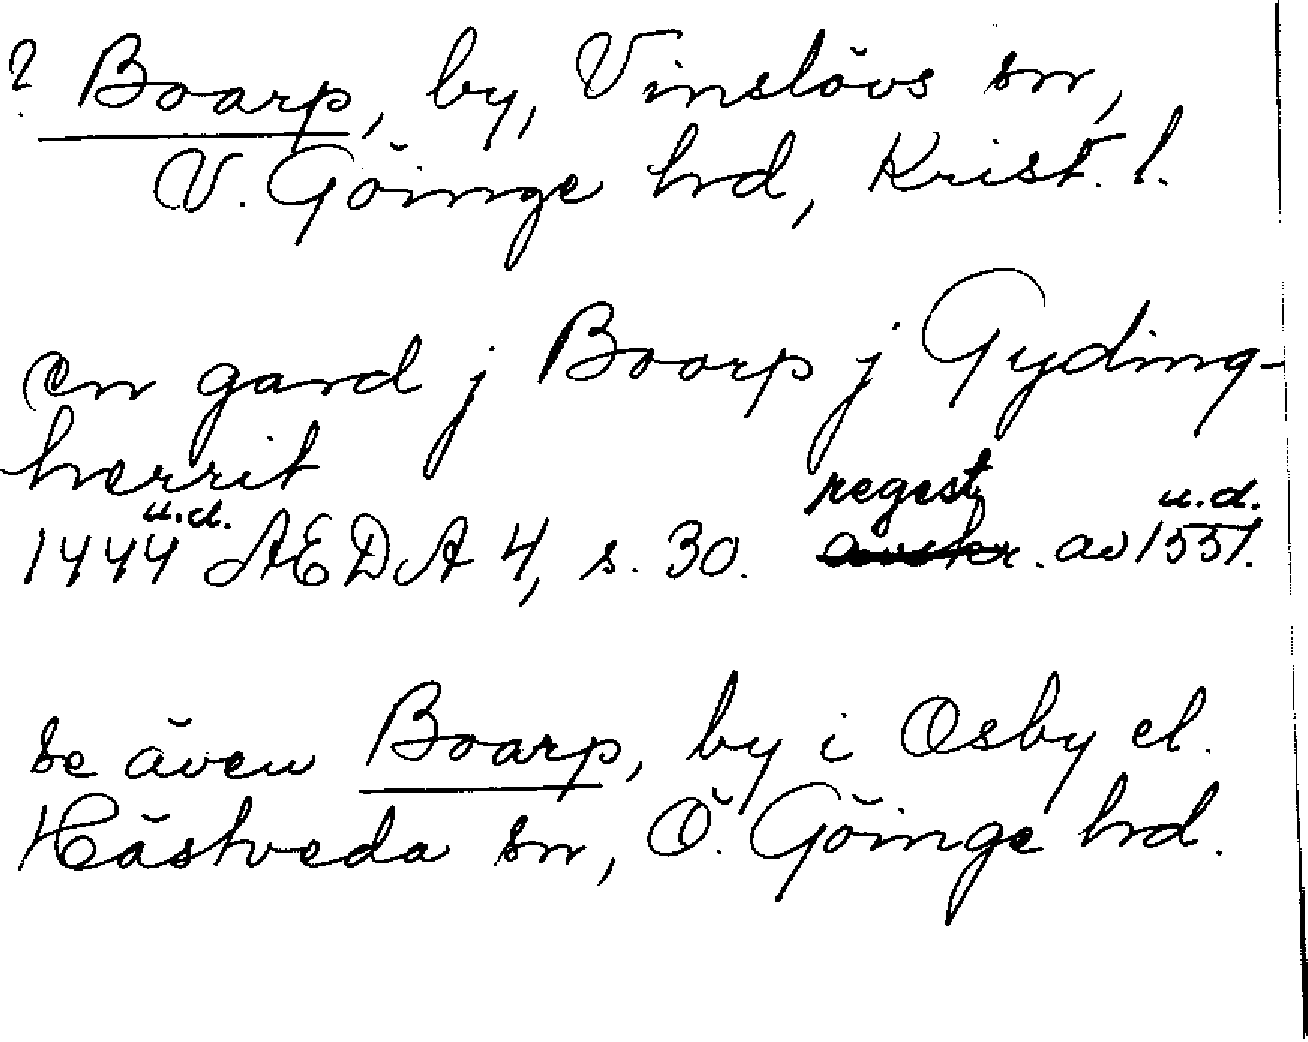 ? Boarp, by, Vinslövs sn,
V. Göinge hrd, Krist. l.
en gard j Boorp j Gyding-
herrit
1444 u.d. ÆDA 4, s. 30. regest av 1551 u.d.
se även Boarp, by i Osby el.
Hästveda sn, Ö. Göinge hrd.